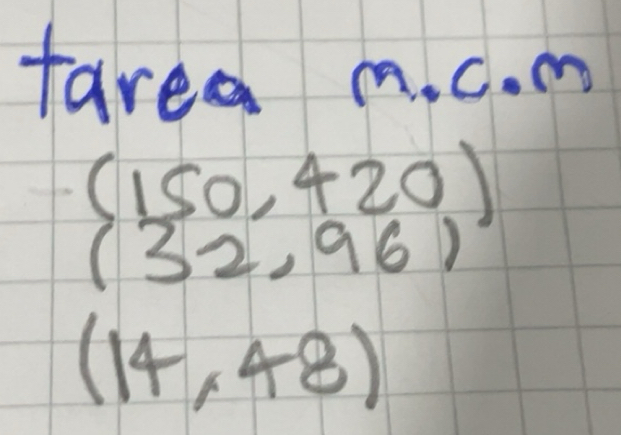 tarea m.c.m
(150, 420)
(32, 96)
(14, 48)